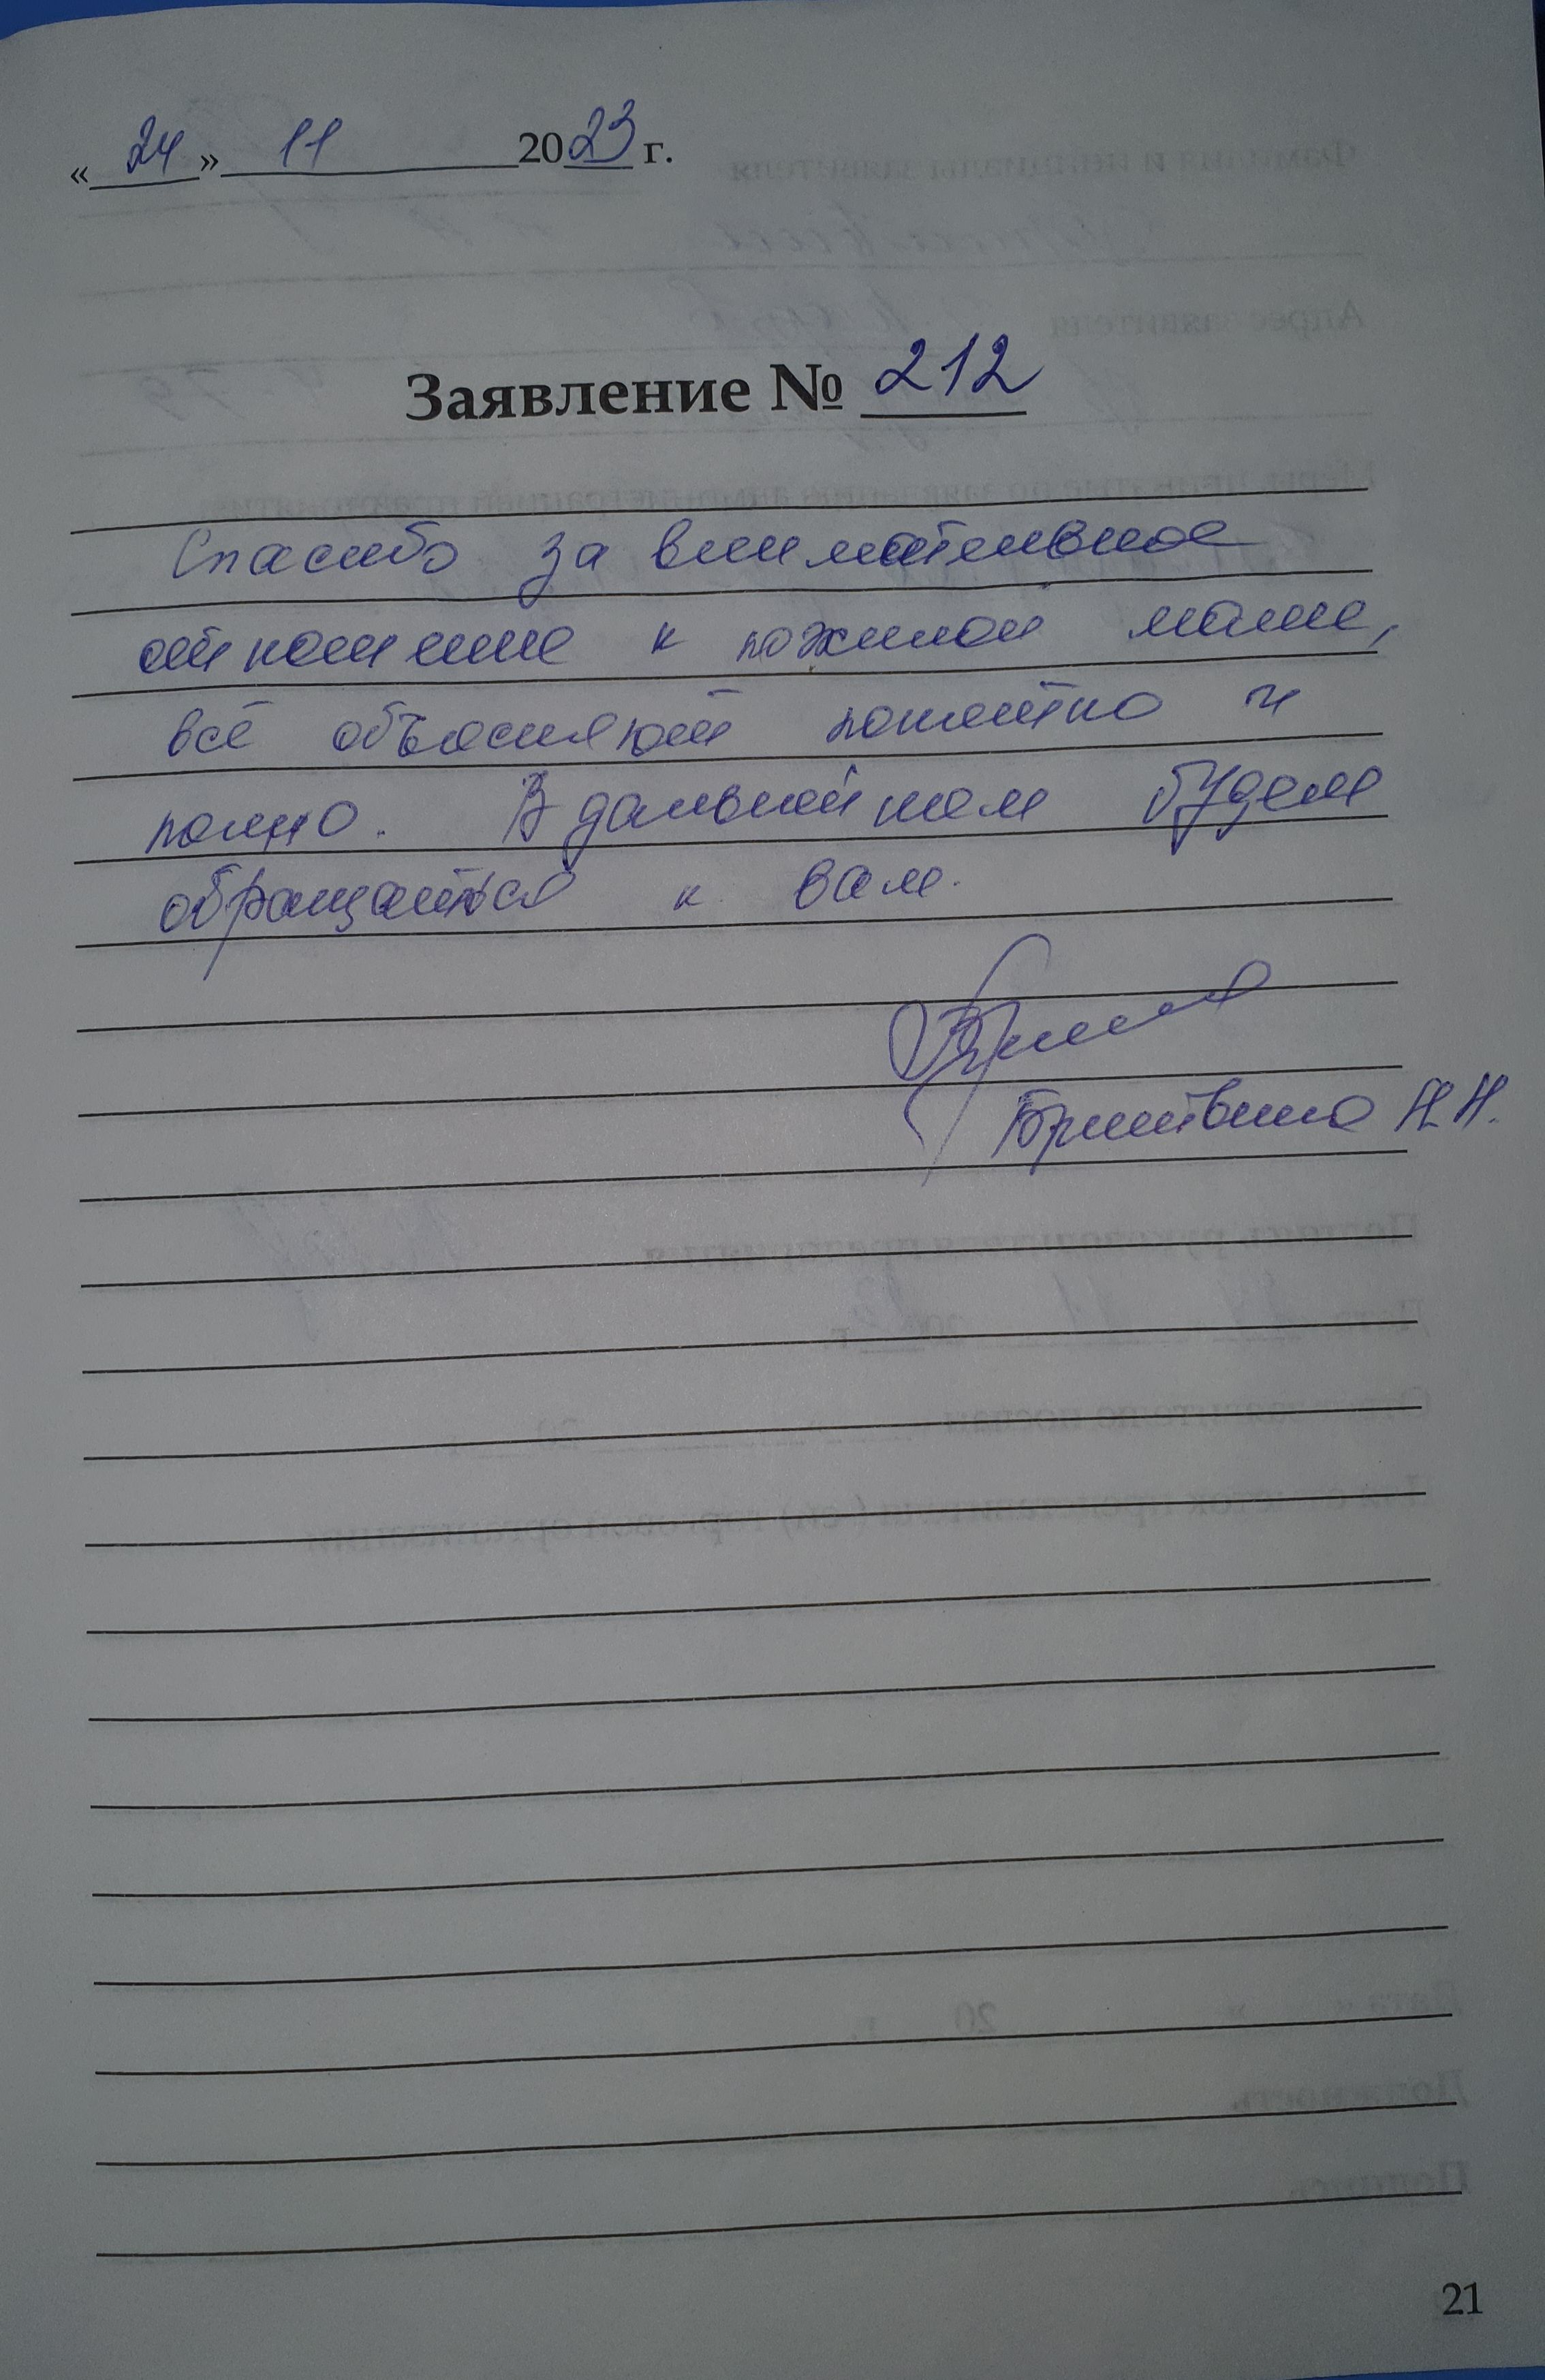 «24» 11 2023 г.
Заявление № 212
Спасибо за внимательное
отношение к пожилой маме,
всё объясняют понятно и
полно. В дальнейшем будем
обращаться к вам.
Бритвина Н.Н.
21